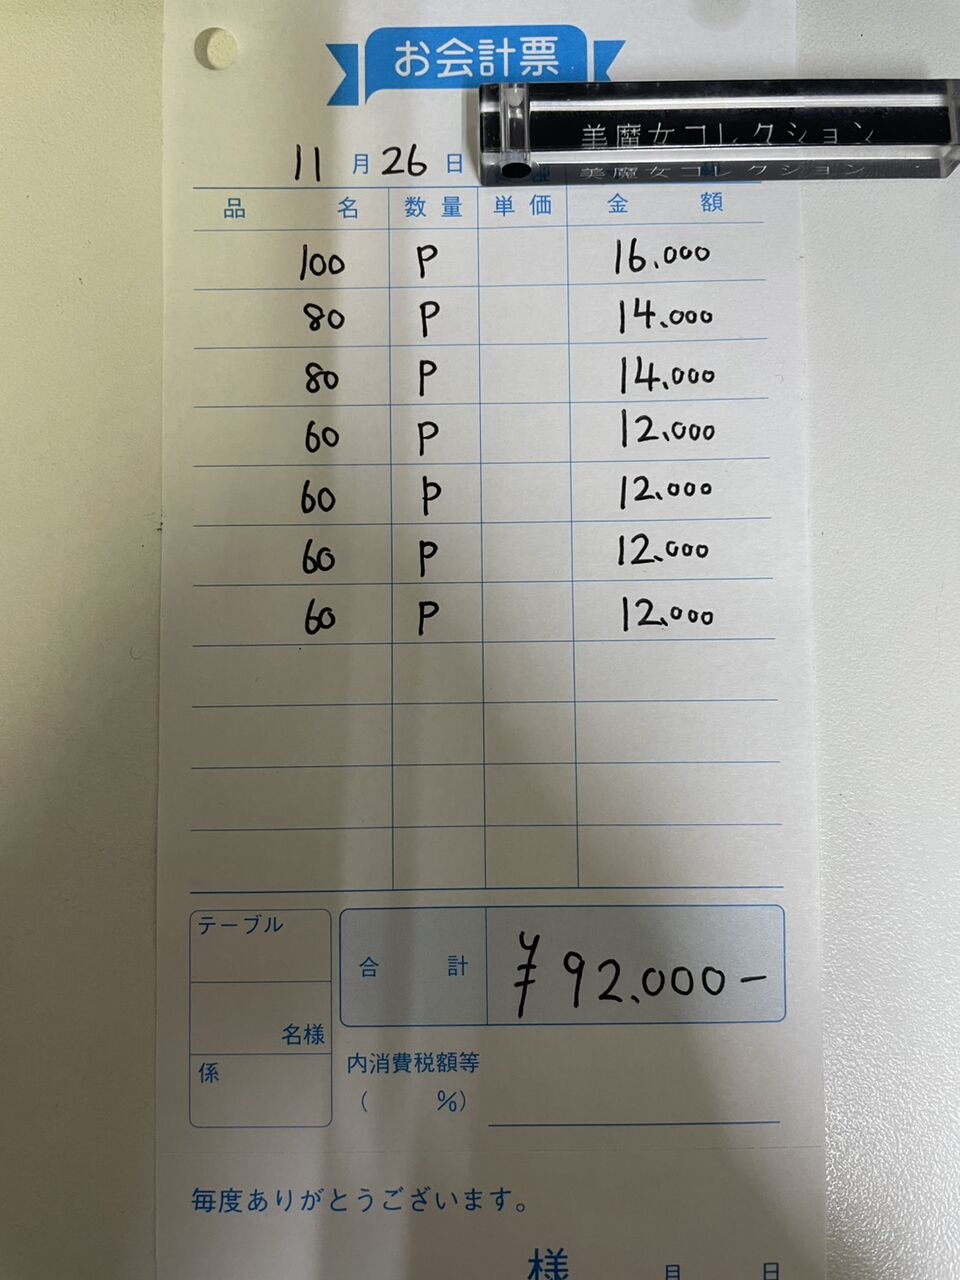 お会計票
美魔女コレクション
美魔女コレクション
11月26日
品名 数量 単価 金額
100 P 16.000
80 P 14.000
80 P 14.000
60 P 12.000
60 P 12.000
60 P 12.000
60 P 12.000
テーブル
名様
係
合計 ¥92.000-
内消費税額等
( %)
毎度ありがとうございます。
様 月 日